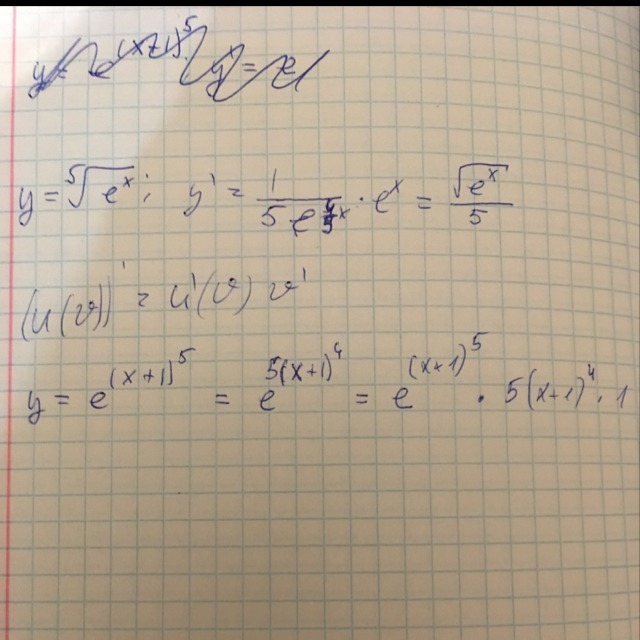 y = ⁵√(eˣ); y' = 1/(5 e^(4/5 x)) · eˣ = √(eˣ)/5
(u(v))' = u'(v) v'
y = e^((x+1)⁵) = e^(5(x+1)⁴) = e^((x+1)⁵) · 5(x+1)⁴ · 1